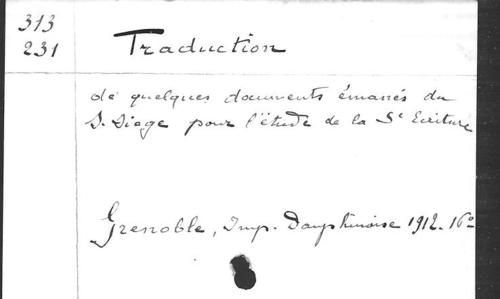 313
231
Traduction
de quelques documents émanés du
S. Siege pour l'étude de la Ste Ecriture
Grenoble, Imp. Dauphinoise 1912. 16º